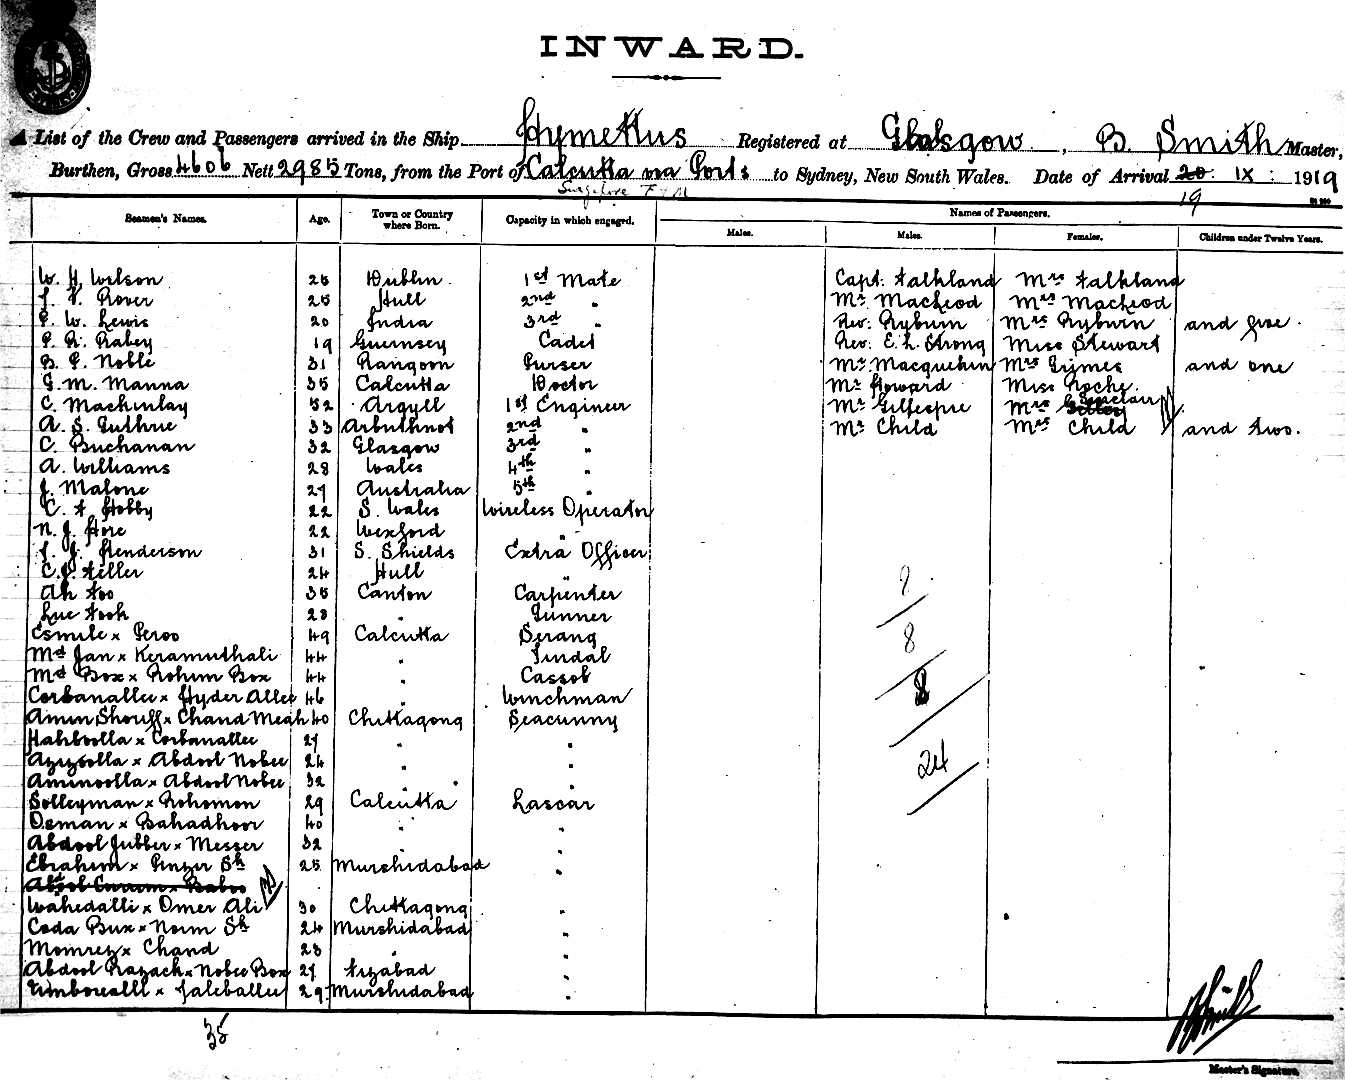 INWARD.
List of the Crew and Passengers arrived in the Ship Hymettus Registered at Glasgow, B. Smith Master,
Burthen, Gross 4606 Nett 2985 Tons, from the Port of Calcutta via Ports to Sydney, New South Wales. Date of Arrival 20. IX : 1919
Singapore 19
Seamen's Names. Age. Town or Country where Born. Capacity in which engaged. Names of Passengers.
Males. Males. Females. Children under Twelve Years.
W. H. Wilson 25 Dublin. 1st Mate Capt. Falkland Mrs Falkland
Rover 25 Hull 2nd " Mr MacLeod Mrs MacLeod
W. Lewis 20 India 3rd " Rev. Ryburn Mrs Ryburn and five.
P. R. Rabey 19 Guernsey Cadet Rev. E. L. Strong Miss Stewart
B. P. Noble 31 Rangoon Purser Mr Macquehin Mrs Grimes and one
G. M. Manna 35 Calcutta Doctor Mr Howard Miss Roche.
C. Mackinlay 52 Argyll 1st Engineer Mr Gillespie Mrs Sinclair
A. S. Guthrie 33 Arbuthnot 2nd " Mr Child Mrs Child and two.
C. Buchanan 32 Glasgow 3rd "
A. Williams 28 Wales 4th "
J. Malone 27 Australia 5th "
C. F. Hobby 22 S. Wales Wireless Operator
N. J. Hore 22 Wexford "
J. Henderson 31 S. Shields Extra Officer
Filler 24 Hull "
Ah Foo 35 Canton Carpenter
Lue Fook 28 " Gunner
Esmile x Peroo 49 Calcutta Serang
Md Jan x Keramuthali 44 " Tindal
Md Box x Rohim Box 44 " Cassob
Corbanallee x Hyder Allee 46 " Winchman
Amin Shouff x Chand Meah 40 Chittagong Seacunny
Hahboolla x Corbanallee 27 " "
Azizoolla x Abdool Nobee 24 " "
Aminoolla x Abdool Nobee 32 " "
Solleyman x Rohomon 29 Calcutta Lascar
Osman x Bahadhoor 40 " "
Abdool Jubber x Messer 32 "
Ebrahim x Penzer Sk 25 Murshidabad "
Wahedalli x Omer Ali 30 Chittagong "
Coda Bux x Norm Sk 24 Murshidabad "
Momrez x Chand 23 " "
Abdool Razack x Nobee Box 27 Fizabad "
x Jaleballee 29. Murshidabad "
8
8
24
35
B Smith
Master's Signature.